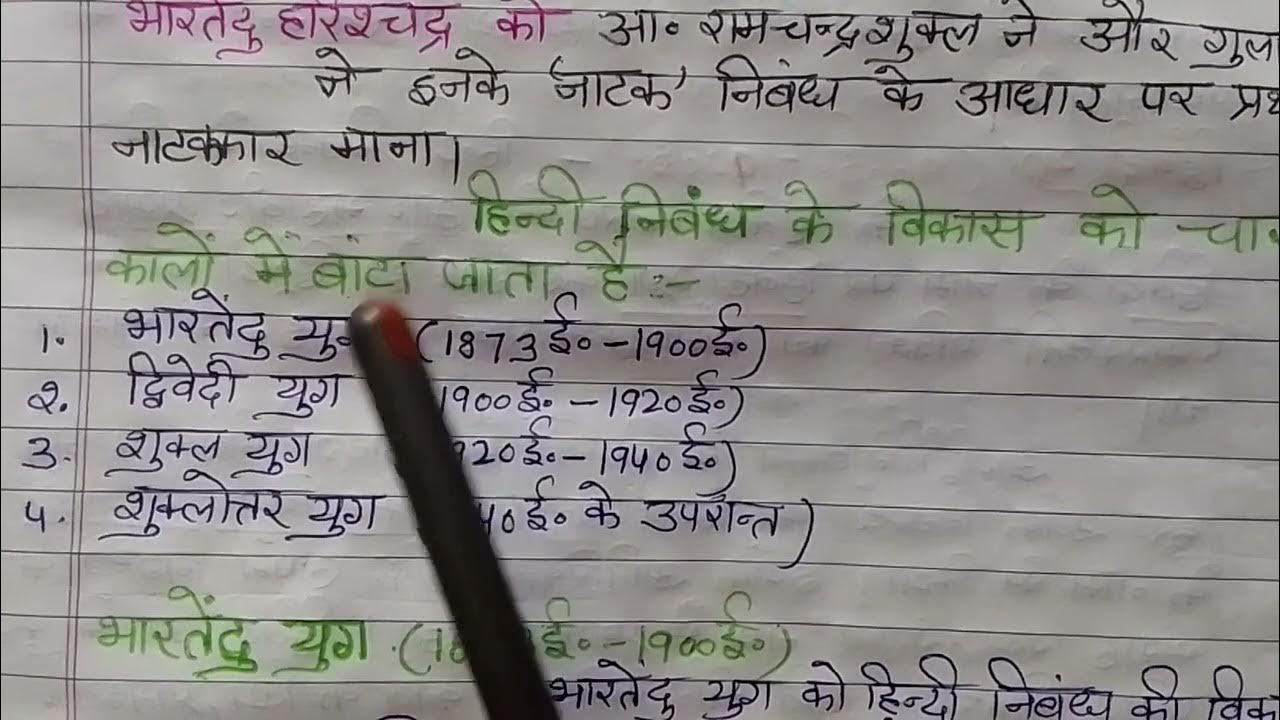 भारतेंदु हरिश्चंद्र को आ॰ रामचन्द्र शुक्ल ने और
ने इनके 'नाटक' निबंध के आधार पर
नाटककार माना।
हिन्दी निबंध के विकास को
कालों में बांटा जाता है :-
1. भारतेंदु (1873ई॰ - 1900ई॰)
2. द्विवेदी युग 1900ई॰ - 1920ई॰)
3. शुक्ल युग 920ई॰ - 1940ई॰)
4. शुक्लोत्तर युग 40ई॰ के उपरान्त)
भारतेंदु युग (1 ई॰ - 1900ई॰)
भारतेंदु युग को हिन्दी निबंध की